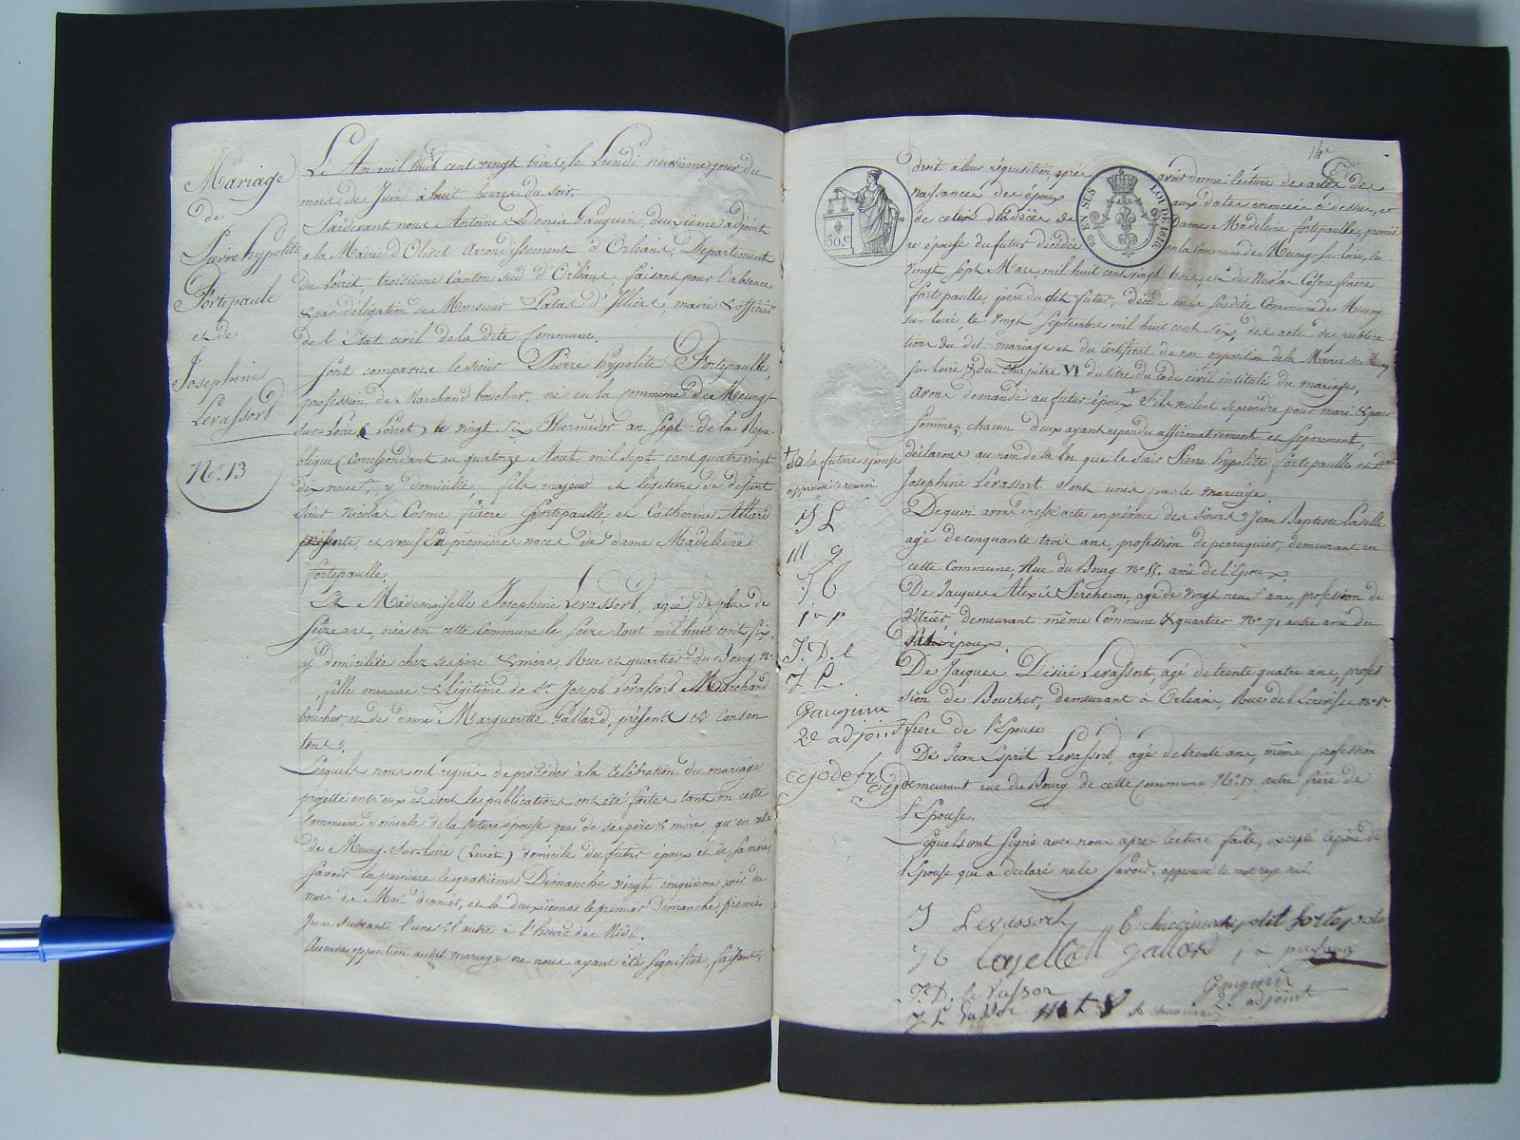 Mariage
de
Pierre hyppolite
Fortepaule
et de
Josephine
Levassort
N° 13
L'An mil huit cent vingt trois, le Lundi neuvième jour du
mois de Juin à huit heures du soir.
Pardevant nous Antoine Denis Gauguin, deuxième adjoint
à la Mairie d'Olivet Arrondissement d'Orléans, Département
du Loiret, troisième Canton sud d'Orléans, faisant pour l'absence
& par délégation de Monsieur Patas d'Illiers, maire & officier
de l'état civil de la dite Commune.
Sont comparus le sieur Pierre hypolite Fortepaulle,
profession de Marchand boucher, né en la commune de Meung-
sur-Loire (Loiret) le vingt six Thermidor an sept de la Répu
blique (Correspondant au quatorze Aout mil sept cent quatre vingt
dix neuf), y domicilié, fils majeur et légitime de defunt
sieur Nicolas Cosme fiacre Fortepaulle, et Catherine
présente, et veuf en premières noces de dame Madeleine
fortepaulle.
Et Mademoiselle Josephine Levassort, agée de plus de
seize ans, née en cette Commune le seize Aout mil huit cent six,
y domiciliée chez ses père & mère, Rue et quartier du Bourg N°
, fille mineure & légitime de Sr. Joseph Levassort Marchand
boucher et de dame Marguerite Gallard, présents et consen
tants.
Lesquels nous ont requis de procéder à la célébration du mariage
projetté entr'eux et dont les publications ont été faites tant en cette
Commune domicile de la future épouse que de ses père & mère qu'en celle
de Meung-Sur-Loire (Loiret) domicile du futur époux et de sa mère
Savoir la première le quatrième Dimanche vingt cinquième jour du
mois de Mai dernier, et la deuxième le premier Dimanche premier
Juin suivant l'une & l'autre à l'heure de Midi.
Aucune opposition audit mariage ne nous ayant été signifiée, faisant
14e
droit à leur réquisition, après avoir donné lecture des actes de
naissances des époux aux dates énoncées ci-dessus, et
de celui de décès de Dame Madeleine fortepaulle, premiè
re épouse du futur décédée en la commune de Meung-sur-Loire, le
vingt sept Mars mil huit cent vingt trois, et de Nicolas Cosme fiacre
fortepaulle, père du dit futur, décédé en la susdite Commune de Meung
sur Loire, le vingt Septembre mil huit cent six, des actes de publica
tion du dit mariage et du certificat de non opposition de la Mairie de Meung
sur Loire & du Chapitre VI du titre du Code civil intitulé du mariage,
avons demandé au futur époux s'ils veulent se prendre pour mari & pour
femme, chacun d'eux ayant répondu affirmativement et séparément,
déclarons au nom de la loi que le Sieur Pierre hypolite Fortepaulle et Dlle
Josephine Levassort sont unis par le mariage.
De quoi avons dressé acte en présence des Sieurs Jean Baptiste Laselle
agé de cinquante trois ans, profession de perruquier, demeurant en
cette Commune, Rue du Bourg N° 55. ami de l'époux.
De Jacques Alexis Percheron, agé de vingt neuf ans, profession de
Vitrier, demeurant même Commune & quartier N° 71 autre ami du
époux.
De Jacques Désiré Levassort, agé de trente quatre ans, profes
sion de Boucher, demeurant à Orléans, Rue de
frère de l'Epouse
De Jean Esprit Levassort, agé de trente ans, même profession
demeurant rue du Bourg de cette commune N° 57 autre frère de
l'Epouse.
Lesquels ont signé avec nous après lecture faite, excepté la mère de
l'épouse qui a déclaré ne le savoir. approuvé le mot rayé nul
la future épouse
approuvé le renvoi
J L
J. D. L
J L
Gauguin
2e adjoint
J Levassort
hypolit fortepaule
Laselle
Gallard
J. D. le Vassor
Gauguin
2e adjoint
50 c
EN SUS
LOI DE 1816